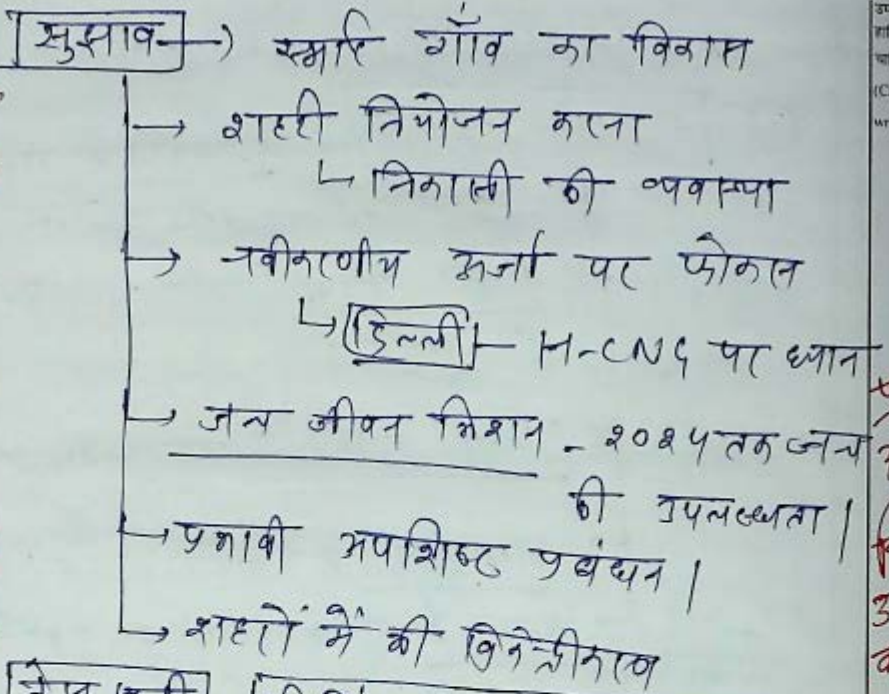 सुझाव → स्मार्ट गाँव का विकास
→ शहरी नियोजन करना
↳ निकासी की व्यवस्था
→ नवीकरणीय ऊर्जा पर फोकस
↳ दिल्ली - H-CNG पर ध्यान
→ जल जीवन मिशन - २०२५ तक जल
की उपलब्धता।
→ प्रभावी अपशिष्ट प्रबंधन।
→ शहरों में की विकेन्द्रीकरण